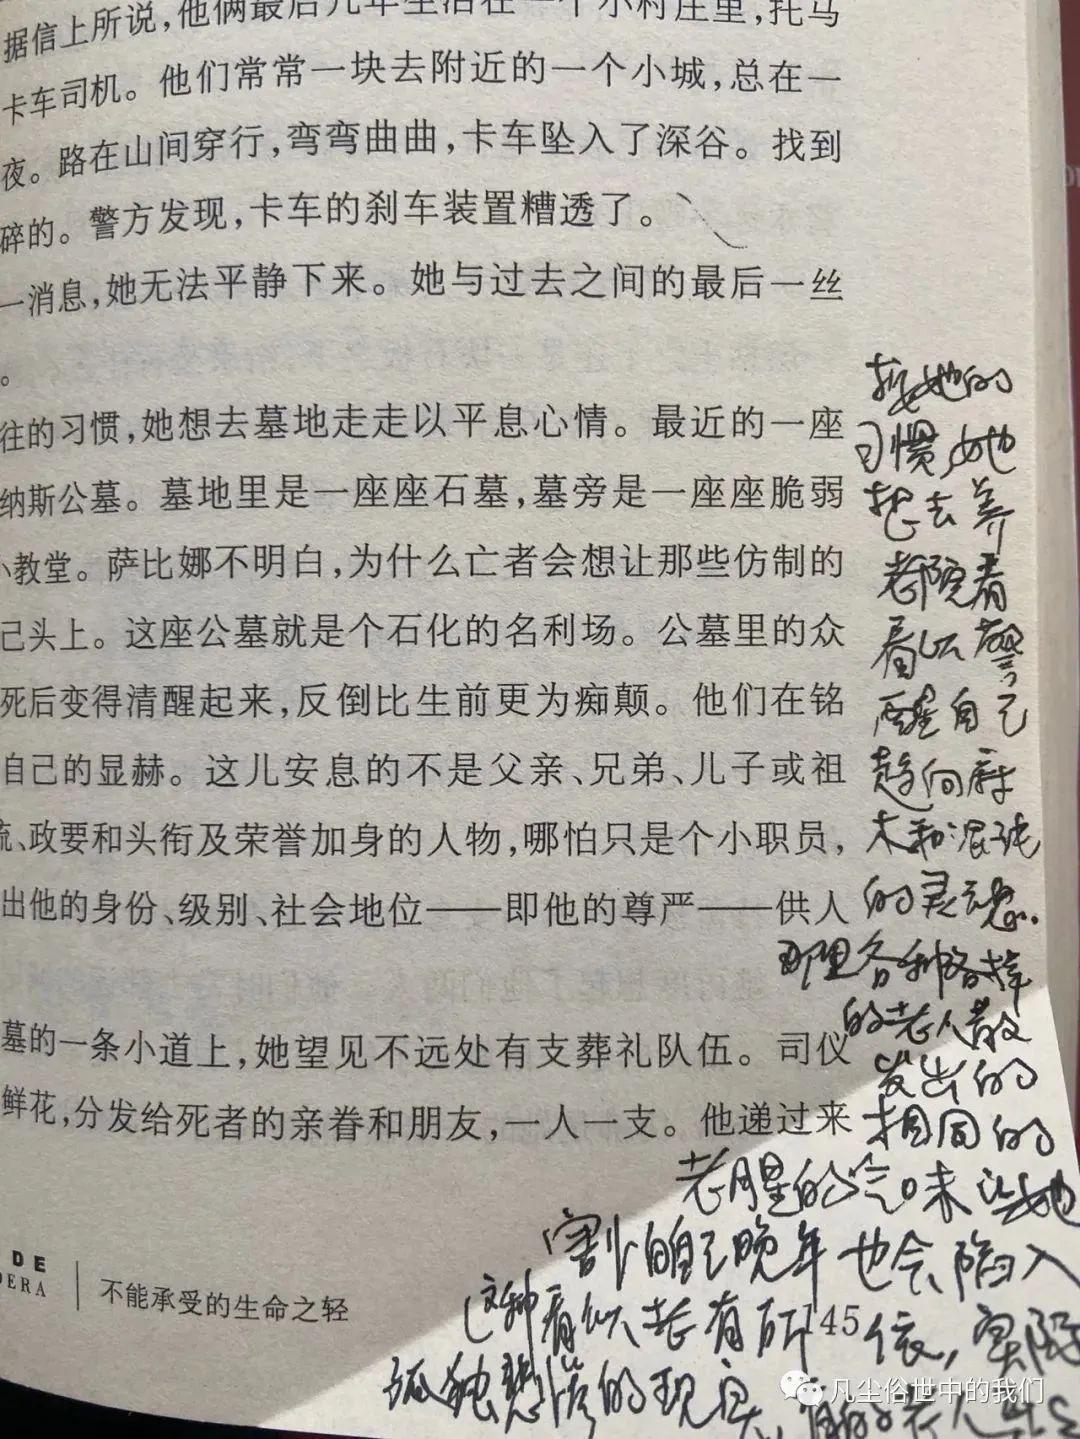 据信上所说，他俩最后几年生活在一个小村庄里，托马
卡车司机。他们常常一块去附近的一个小城，总在一
夜。路在山间穿行，弯弯曲曲，卡车坠入了深谷。找到
碎的。警方发现，卡车的刹车装置糟透了。
一消息，她无法平静下来。她与过去之间的最后一丝
。
往的习惯，她想去墓地走走以平息心情。最近的一座
纳斯公墓。墓地里是一座座石墓，墓旁是一座座脆弱
小教堂。萨比娜不明白，为什么亡者会想让那些仿制的
己头上。这座公墓就是个石化的名利场。公墓里的众
死后变得清醒起来，反倒比生前更为痴颠。他们在铭
自己的显赫。这儿安息的不是父亲、兄弟、儿子或祖
流、政要和头衔及荣誉加身的人物，哪怕只是个小职员，
出他的身份、级别、社会地位——即他的尊严——供人
墓的一条小道上，她望见不远处有支葬礼队伍。司仪
鲜花，分发给死者的亲眷和朋友，一人一支。他递过来
按她的
习惯，她
想去养
老院看
看以警
醒自己
趋向麻
木和混沌
的灵魂.
那里各种各样
的老人散
发出的
相同的
老腥的气味让她
害怕自己晚年也会陷入
这种看似老有所依，实际
孤独悲惨的现实，
DE
DERA
不能承受的生命之轻
145
凡尘俗世中的我们